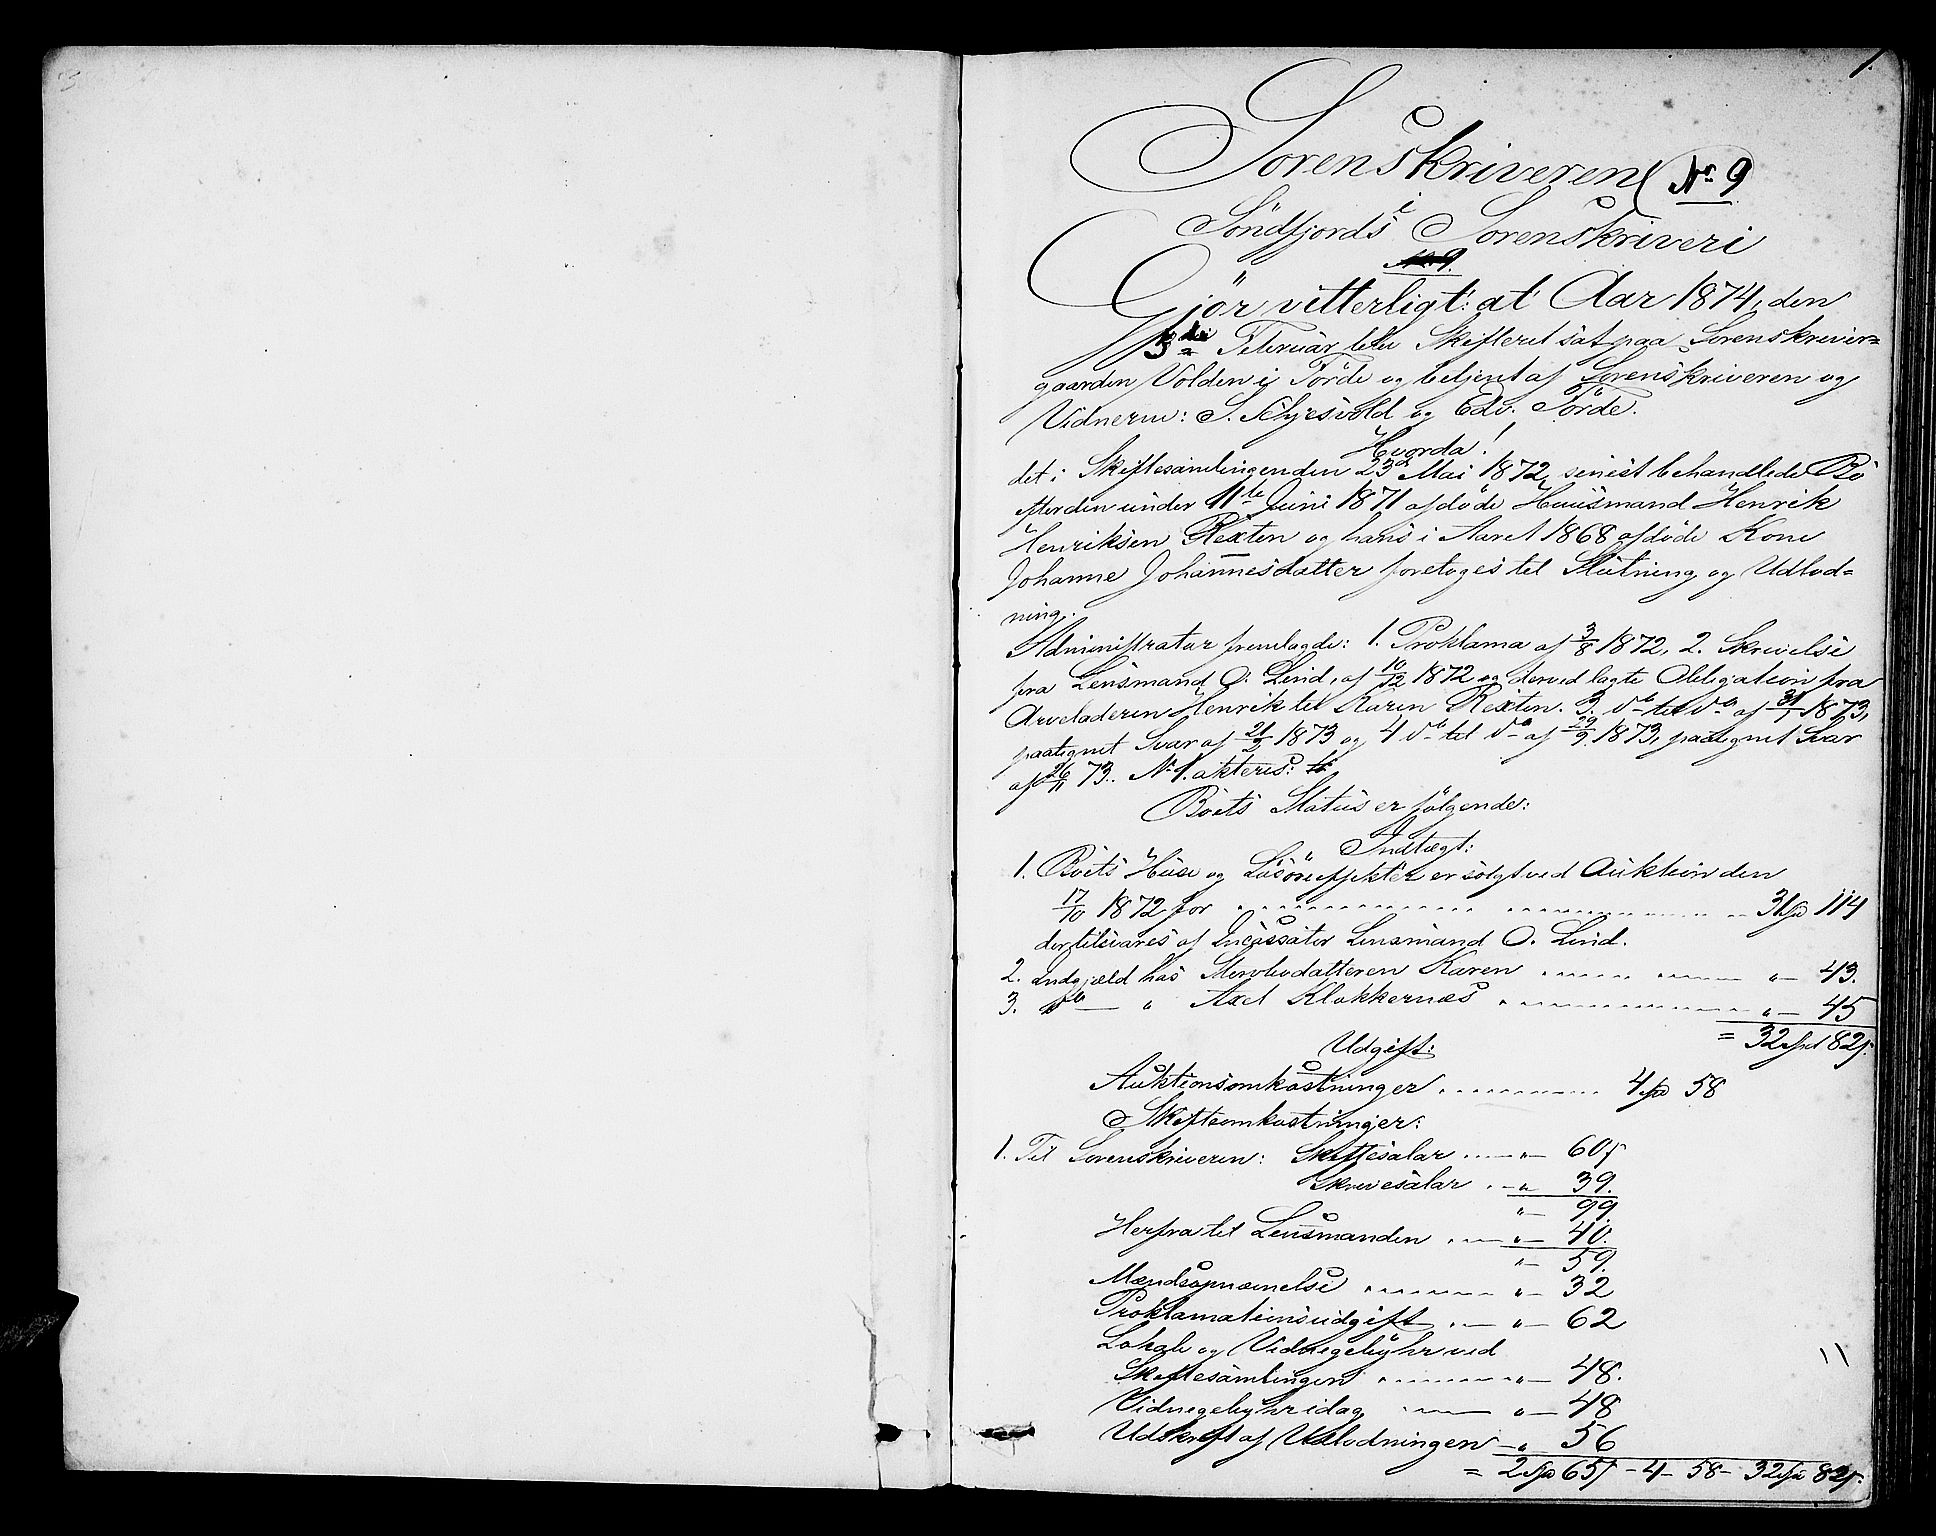 1.
Sorenskriveren No 9
i
Söndfjords Sorenskriveri
No 9.
Gjör vitterligt: at Aar 1874, den
3die Februar blev Skifteret sat paa Sorenskriver-
gaarden Volden i Förde og betjent af Sorenskriveren og
Vidnerne: S. og Edv. Förde.
Hvorda!
det i Skiftesamlingen den 23de Mai 1872, senest behandlede Bo
efter den under 11te Juni 1871 afdöde Huusmand Henrik
Henriksen Rexten og hans i Aaret 1868 afdöde Kone
Johanne Johannesdatter foretoges til Slutning og Udlod-
ning.
Administrator fremlagde: 1. Proklama af 3/8 1872, 2. Skrivelse
fra Lensmand O. Lind, af 10/12 1872 og derved lagte Obligation fra
Arveladeren Henrik til Karen Rexten. 3. do til do af 31/1 1873,
paategnet Svar af 21/2 1873 og 4 do til do af 29/9 1873, paategnet Svar
af 26/11 73. No 1. akteres:
Boets Status er fölgende:
Indtægt:
1. Boets Huse og Lösöreeffekter er solgt ved Auktion den
17/10 1872 for 31 spd 114
der tilsvares af Incassator Lensmand O. Lind.
2. Indgjæld hos Karen " — 43.
3. do — " Axel Klokkernæs " — 45
= 32 spd 82 s.
Udgift:
Auktionsomkostninger 4 spd 58
Skifteomkostninger:
1. Til Sorenskriveren: Skiftesalar " — 60 s
Skrivesalar " — 39.
" — 99
Herfra til Lensmanden " — 40.
" — 59.
Mændsopnævnelse " — 32
Proklamationsudgift " — 62
Lokale og Vidnegebyhr ved
Skiftesamlingen " — 48.
Vidnegebyhr idag " — 48
Udskrift af Udlodningen " — 56
= 2 spd 65 s - 4 - 58 - 32 spd 82 s.